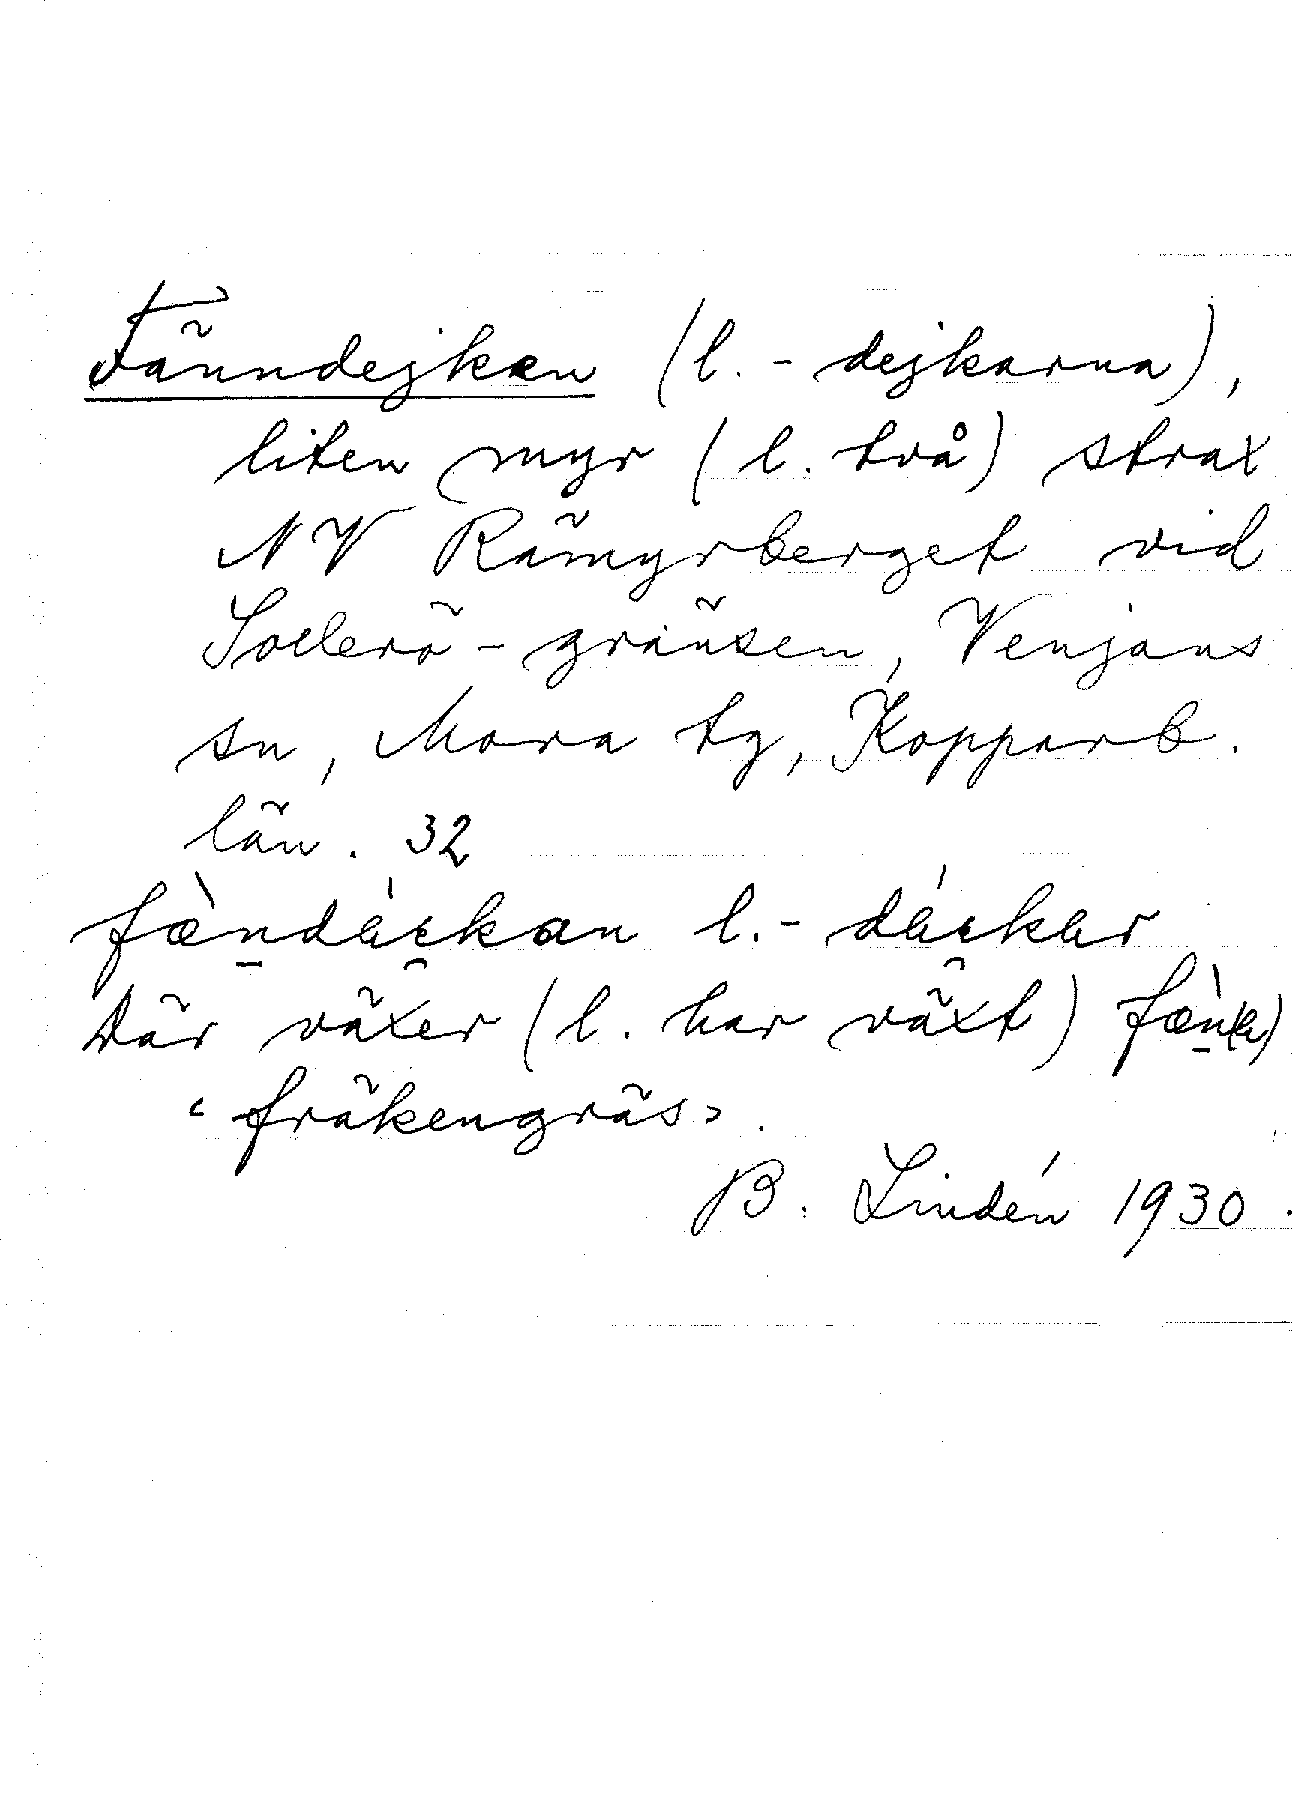 Fänndejken (l. -dejkarna),
liten myr (l. två) strax
NV Rämyrberget vid
Sollerö-gränsen, Venjans
sn, Mora tg, Kopparb.
län. 32
l.-
Där växer (l. har växt)
‹fräkengräs›.
B. Lindén 1930.